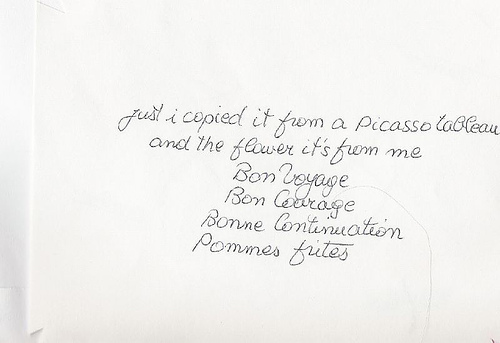 just i copied it from a picasso tableau
and the flower it's from me
Bon Voyage
Bon Courage
Bonne Continuation
Pommes frites